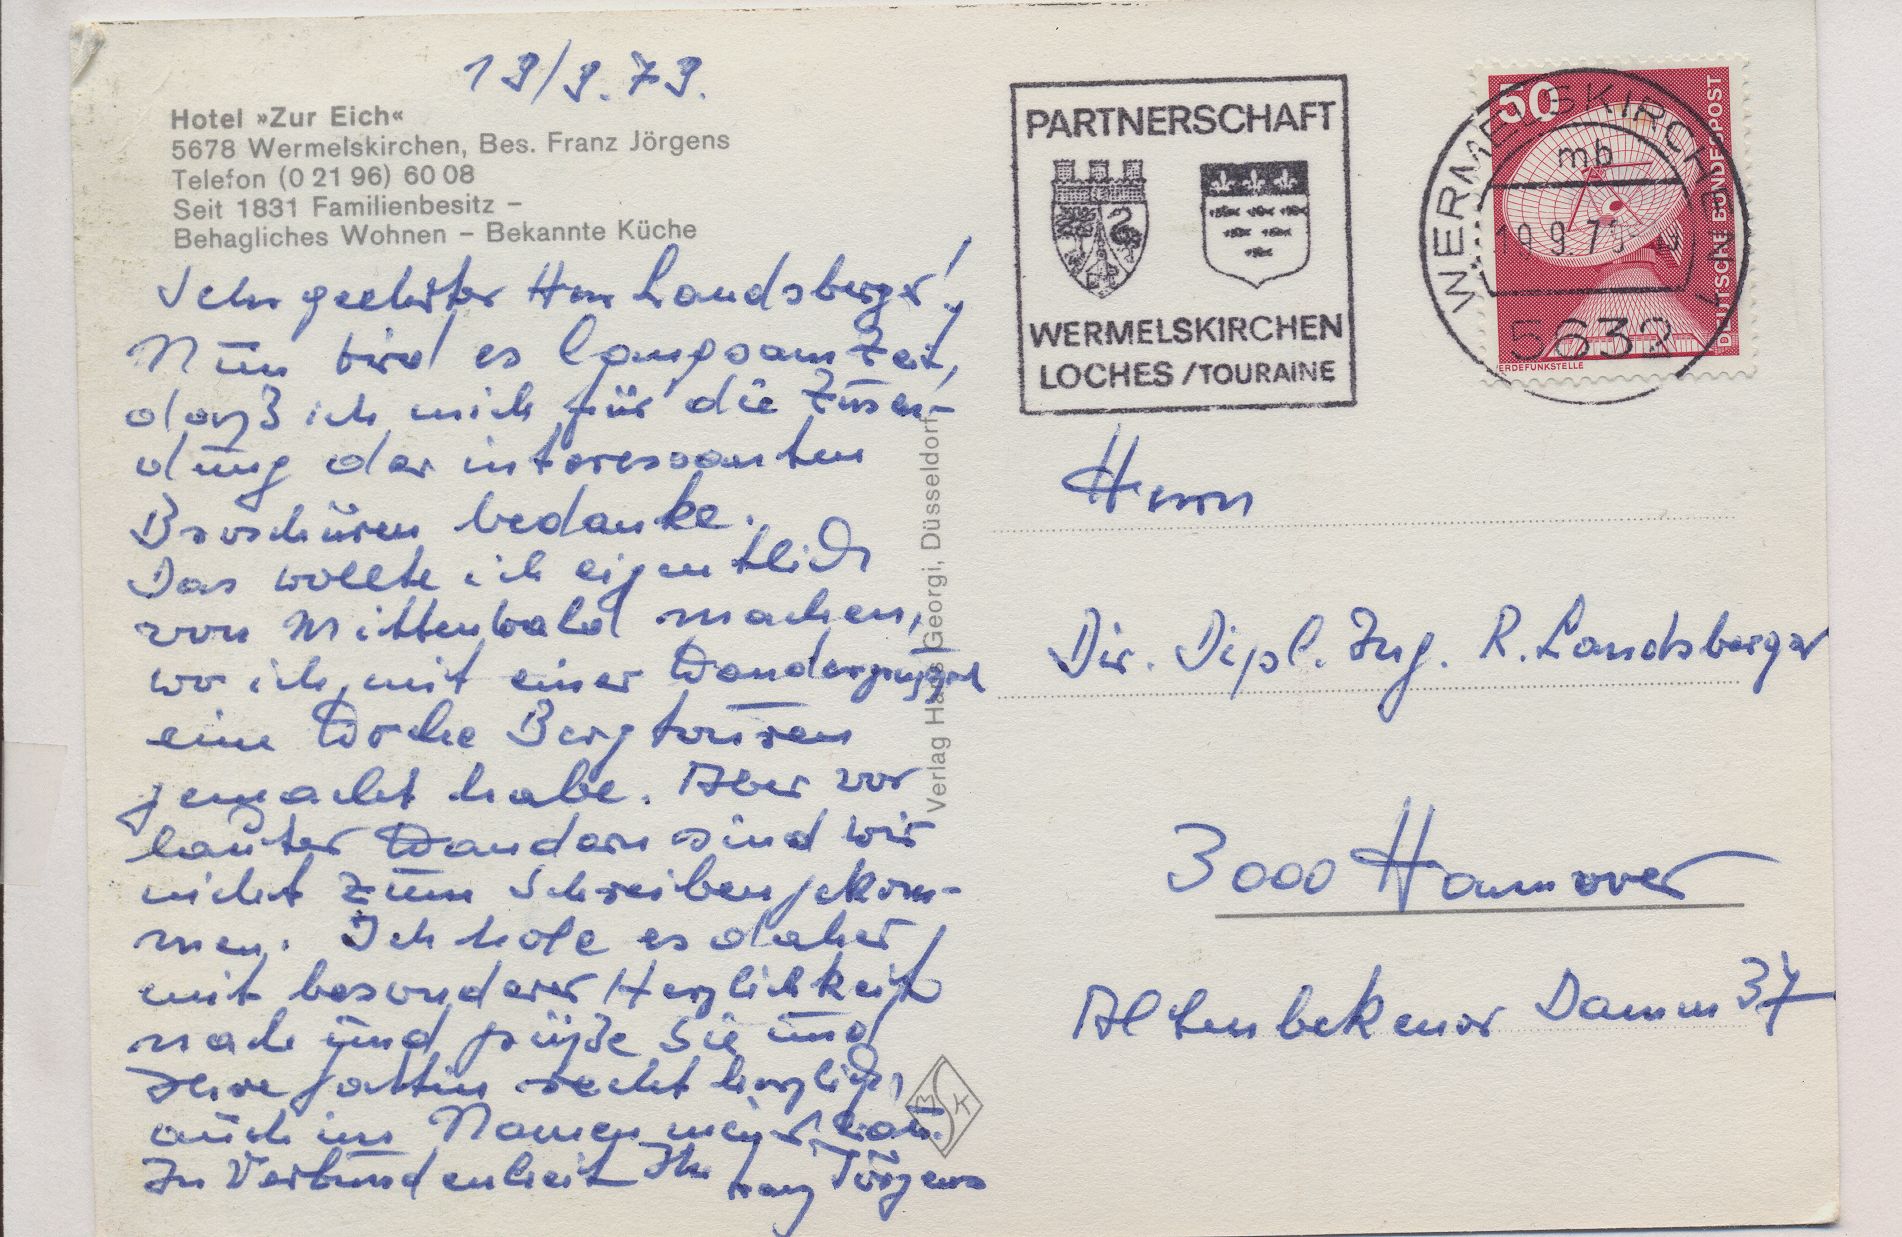 19/9.79.
Hotel »Zur Eich«
5678 Wermelskirchen, Bes. Franz Jörgens
Telefon (0 21 96) 60 08
Seit 1831 Familienbesitz –
Behagliches Wohnen – Bekannte Küche
Sehr geehrter Herr Landsberger!
Nun wird es langsam Zeit,
daß ich mich für die Zusen-
dung der interessanten
Broschüren bedanke.
Das wollte ich eigentlich
von Mittenwald machen,
wo ich mit einer Wandergruppe
eine Woche Bergtouren
gemacht habe. Aber vor
lauter Wandern sind wir
nicht zum Schreiben gekom-
men. Ich hole es daher
mit besonderer Herzlichkeit
nach und grüße Sie und
Ihre Gattin recht herzlich,
auch im Namen meiner Frau.
In Verbundenheit Ihr Franz Jörgens
Verlag Hans Georgi, Düsseldorf
BSK
PARTNERSCHAFT
WERMELSKIRCHEN
LOCHES /TOURAINE
50
DEUTSCHE BUNDESPOST
ERDEFUNKSTELLE
WERMELSKIRCHEN 1
mb
19.9.79
5632
Herrn
Dir. Dipl. Ing. R. Landsberger
3000 Hannover
Altenbekener Damm 37